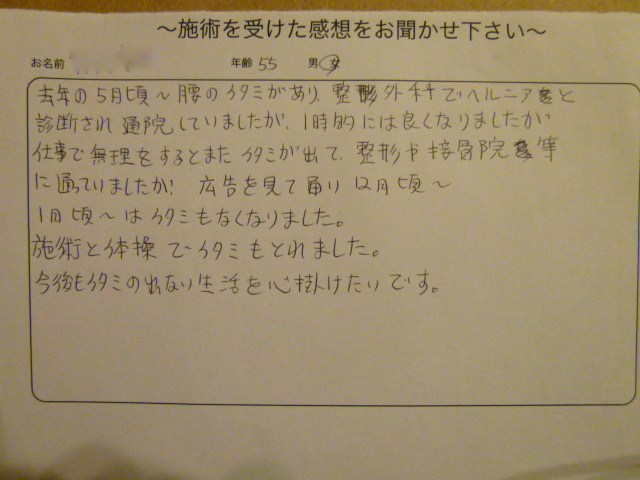 ～施術を受けた感想をお聞かせ下さい～
お名前 年齢 55 男 女
去年の5月頃～腰のイタミがあり、整形外科でヘルニアと
診断され通院していましたが、1時的には良くなりましたが
仕事で無理をするとまたイタミが出て、整形や接骨院等
に通っていましたが! 広告を見て 12月頃～
1月頃～はイタミもなくなりました。
施術と体操でイタミもとれました。
今後もイタミの出ない生活を心掛けたいです。